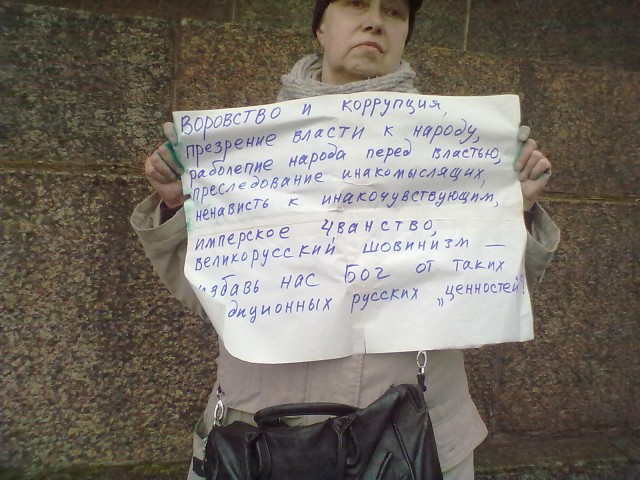 Воровство и коррупция,
презрение власти к народу,
раболепие народа перед властью,
преследование инакомыслящих,
ненависть к инакочувствующим,
имперское чванство,
великорусский шовинизм —
избавь нас Бог от таких
диционных русских „ценностей"!